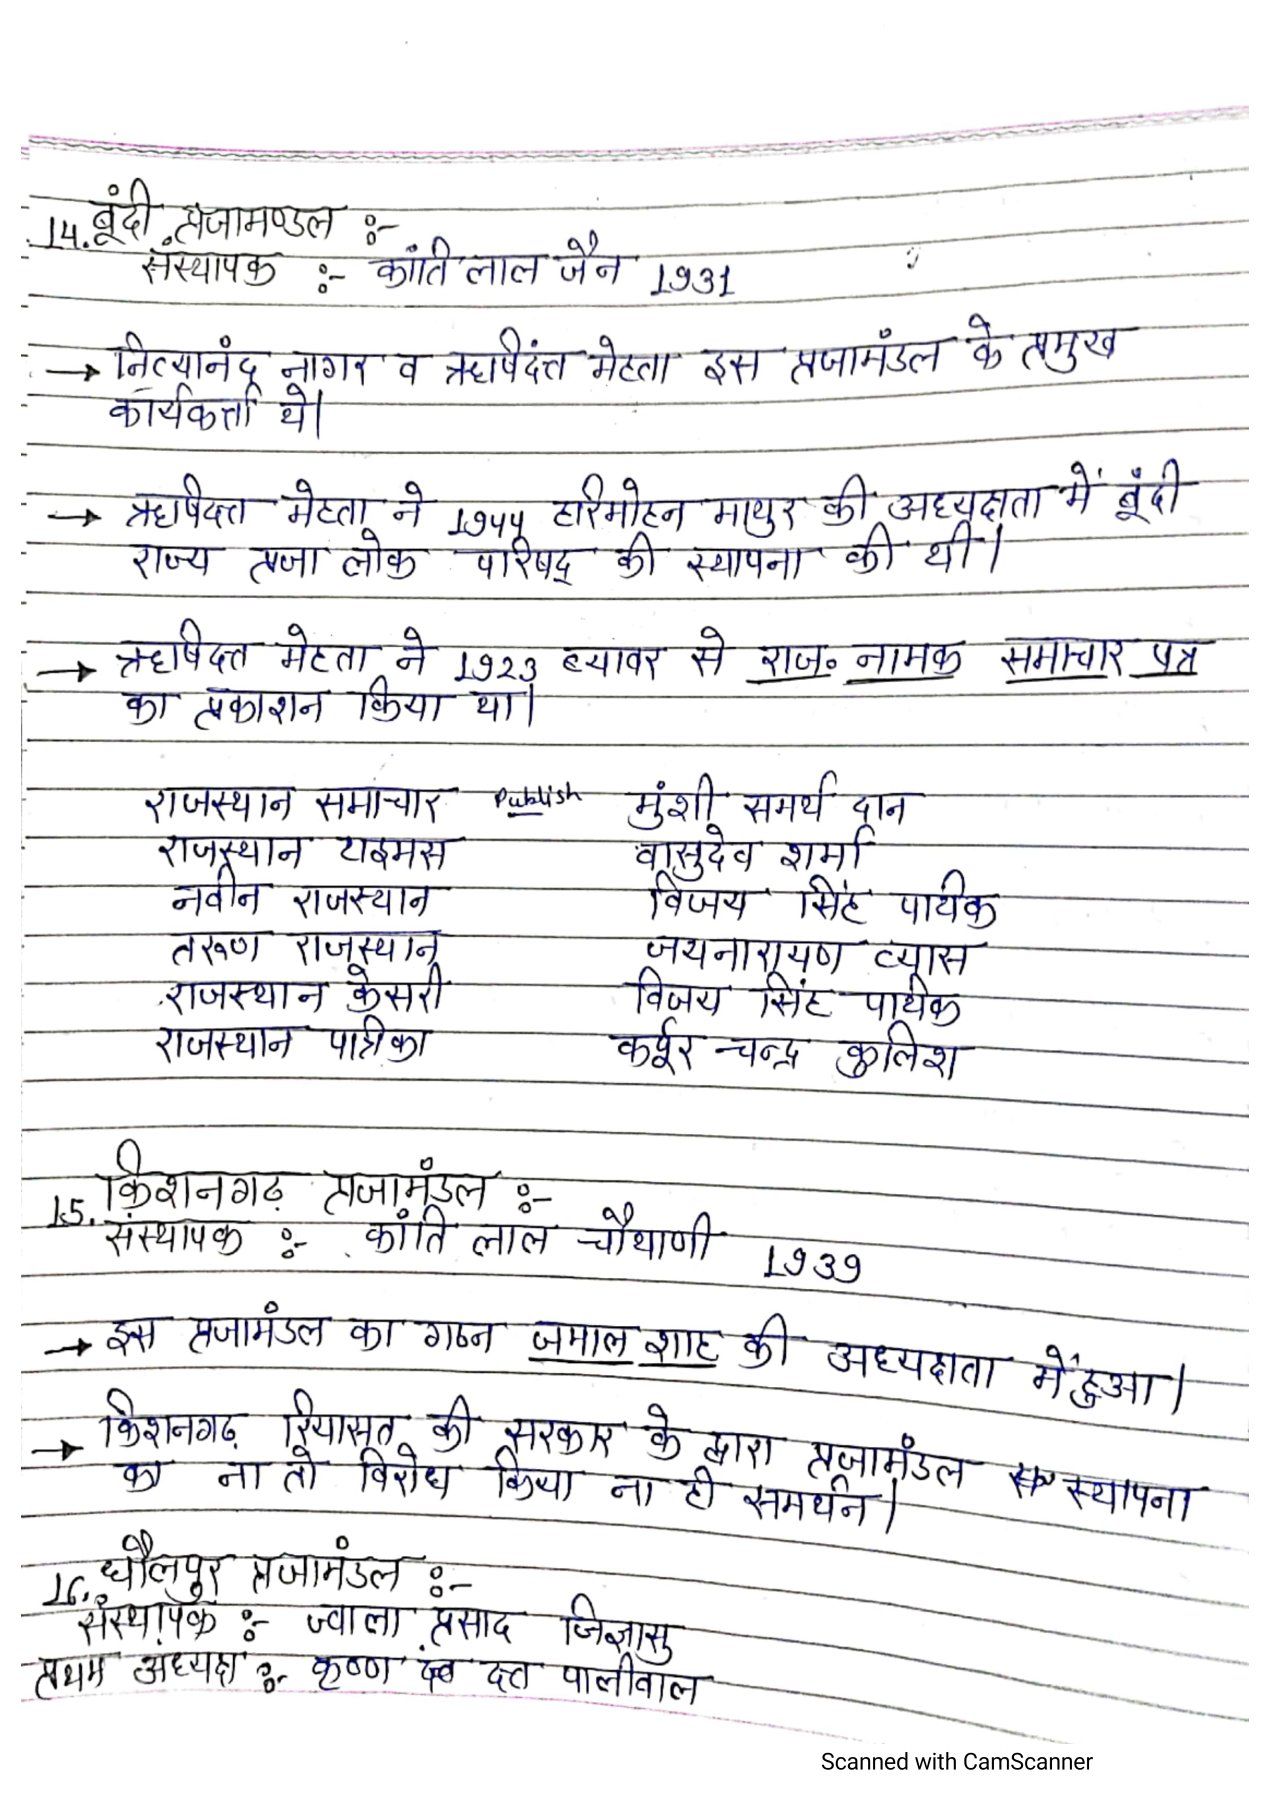 14. बूंदी प्रजामण्डल :-
संस्थापक :- कांति लाल जैन 1931
→ नित्यानंद नागर व ऋषिदंत्त मेहता इस प्रजामंडल के प्रमुख
कार्यकर्त्ता थे।
→ ऋषिदत्त मेहता ने 1944 हरिमोहन माथुर की अध्यक्षता में बूंदी
राज्य प्रजा लोक परिषद् की स्थापना की थी।
→ ऋषिदत्त मेहता ने 1923 ब्यावर से राज॰ नामक समाचार पत्र
का प्रकाशन किया था।
राजस्थान समाचार Publish मुंशी समर्थ दान
राजस्थान टाइमस वासुदेव शर्मा
नवीन राजस्थान विजय सिंह पथिक
तरूण राजस्थान जयनारायण व्यास
राजस्थान केसरी विजय सिंह पथिक
राजस्थान पत्रिका कर्पूर चन्द्र कुलिश
15. किशनगढ़ प्रजामंडल :-
संस्थापक :- कांति लाल चौथाणी 1939
→ इस प्रजामंडल का गठन जमाल शाह की अध्यक्षता में हुआ।
→ किशनगढ़ रियासत की सरकार के द्वारा प्रजामंडल स्थापना
का ना तो विरोध किया ना ही समर्थन।
16. धौलपुर प्रजामंडल :-
संस्थापक :- ज्वाला प्रसाद जिज्ञासु
प्रथम अध्यक्ष :- कृष्ण देव दत्त पालीवाल
Scanned with CamScanner